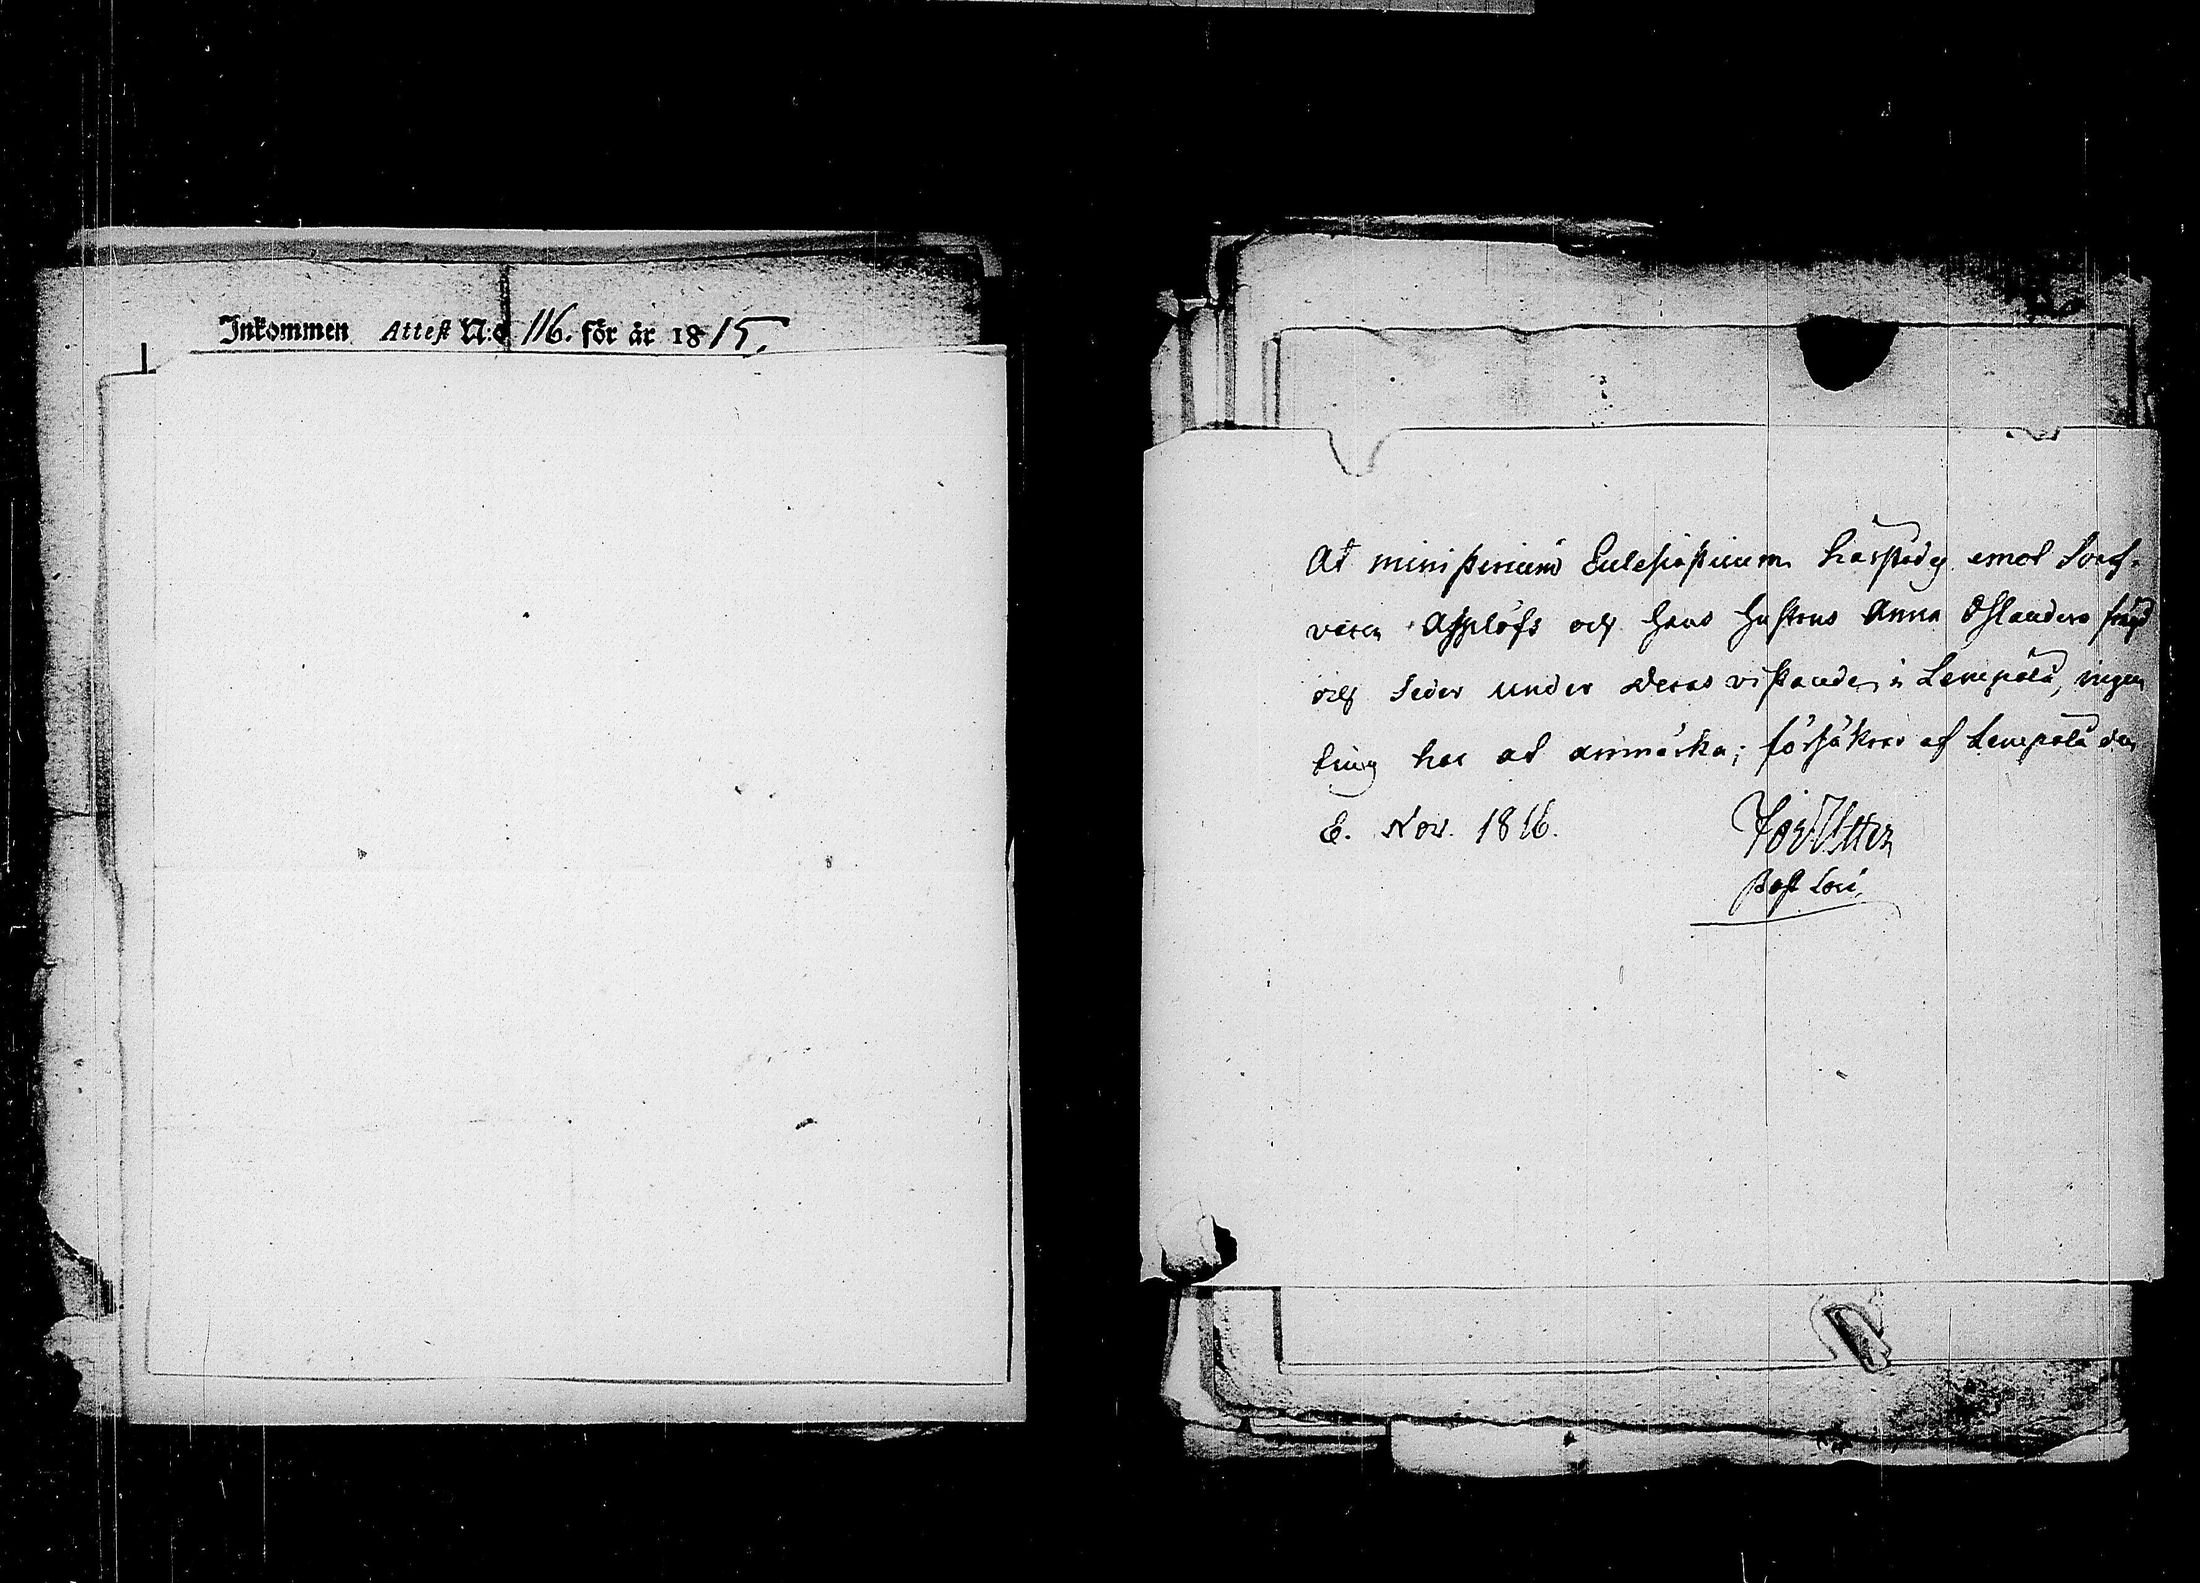 Inkommen Attest N:o 116. för år 1815.
At ministerium Eclesiasticum härstädes emot Svarf-
varen Applöfs och hans hustrus Anna Öhlanders frägd
och seder under deras vistande i Lempälä, ingen
ting har at anmärka; försäkras af Lempälä den
6. Nov. 1816.
Past Loci,